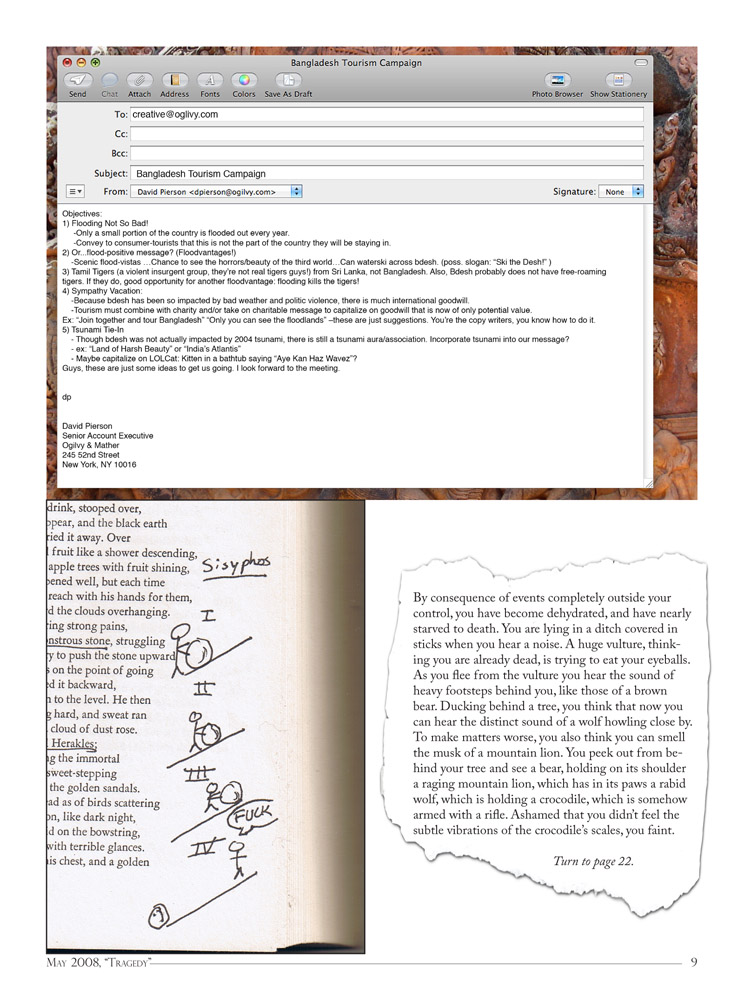 Bangladesh Tourism Campaign
Send Chat Attach Address Fonts Colors Save As Draft Photo Browser Show Stationery
To: creative@oglivy.com
Cc:
Bcc:
Subject: Bangladesh Tourism Campaign
From: David Pierson <dpierson@ogilvy.com> Signature: None
Objectives:
1) Flooding Not So Bad!
-Only a small portion of the country is flooded out every year.
-Convey to consumer-tourists that this is not the part of the country they will be staying in.
2) Or...flood-positive message? (Floodvantages!)
-Scenic flood-vistas …Chance to see the horrors/beauty of the third world…Can waterski across bdesh. (poss. slogan: “Ski the Desh!” )
3) Tamil Tigers (a violent insurgent group, they're not real tigers guys!) from Sri Lanka, not Bangladesh. Also, Bdesh probably does not have free-roaming
tigers. If they do, good opportunity for another floodvantage: flooding kills the tigers!
4) Sympathy Vacation:
-Because bdesh has been so impacted by bad weather and politic violence, there is much international goodwill.
-Tourism must combine with charity and/or take on charitable message to capitalize on goodwill that is now of only potential value.
Ex: “Join together and tour Bangladesh” “Only you can see the floodlands” –these are just suggestions. You're the copy writers, you know how to do it.
5) Tsunami Tie-In
- Though bdesh was not actually impacted by 2004 tsunami, there is still a tsunami aura/association. Incorporate tsunami into our message?
- ex: “Land of Harsh Beauty” or “India's Atlantis”
- Maybe capitalize on LOLCat: Kitten in a bathtub saying “Aye Kan Haz Wavez”?
Guys, these are just some ideas to get us going. I look forward to the meeting.
dp
David Pierson
Senior Account Executive
Ogilvy & Mather
245 52nd Street
New York, NY 10016
drink, stooped over,
ppear, and the black earth
ried it away. Over
fruit like a shower descending,
apple trees with fruit shining,
pened well, but each time
reach with his hands for them,
d the clouds overhanging.
ing strong pains,
onstrous stone, struggling
y to push the stone upward
s on the point of going
ed it backward,
n to the level. He then
g hard, and sweat ran
cloud of dust rose.
Herakles;
ng the immortal
sweet-stepping
the golden sandals.
ad as of birds scattering
on, like dark night,
d on the bowstring,
with terrible glances.
is chest, and a golden
Sisyphos
I
II
III
FUCK
IV
By consequence of events completely outside your
control, you have become dehydrated, and have nearly
starved to death. You are lying in a ditch covered in
sticks when you hear a noise. A huge vulture, think-
ing you are already dead, is trying to eat your eyeballs.
As you flee from the vulture you hear the sound of
heavy footsteps behind you, like those of a brown
bear. Ducking behind a tree, you think that now you
can hear the distinct sound of a wolf howling close by.
To make matters worse, you also think you can smell
the musk of a mountain lion. You peek out from be-
hind your tree and see a bear, holding on its shoulder
a raging mountain lion, which has in its paws a rabid
wolf, which is holding a crocodile, which is somehow
armed with a rifle. Ashamed that you didn't feel the
subtle vibrations of the crocodile's scales, you faint.
Turn to page 22.
May 2008, “Tragedy” 9